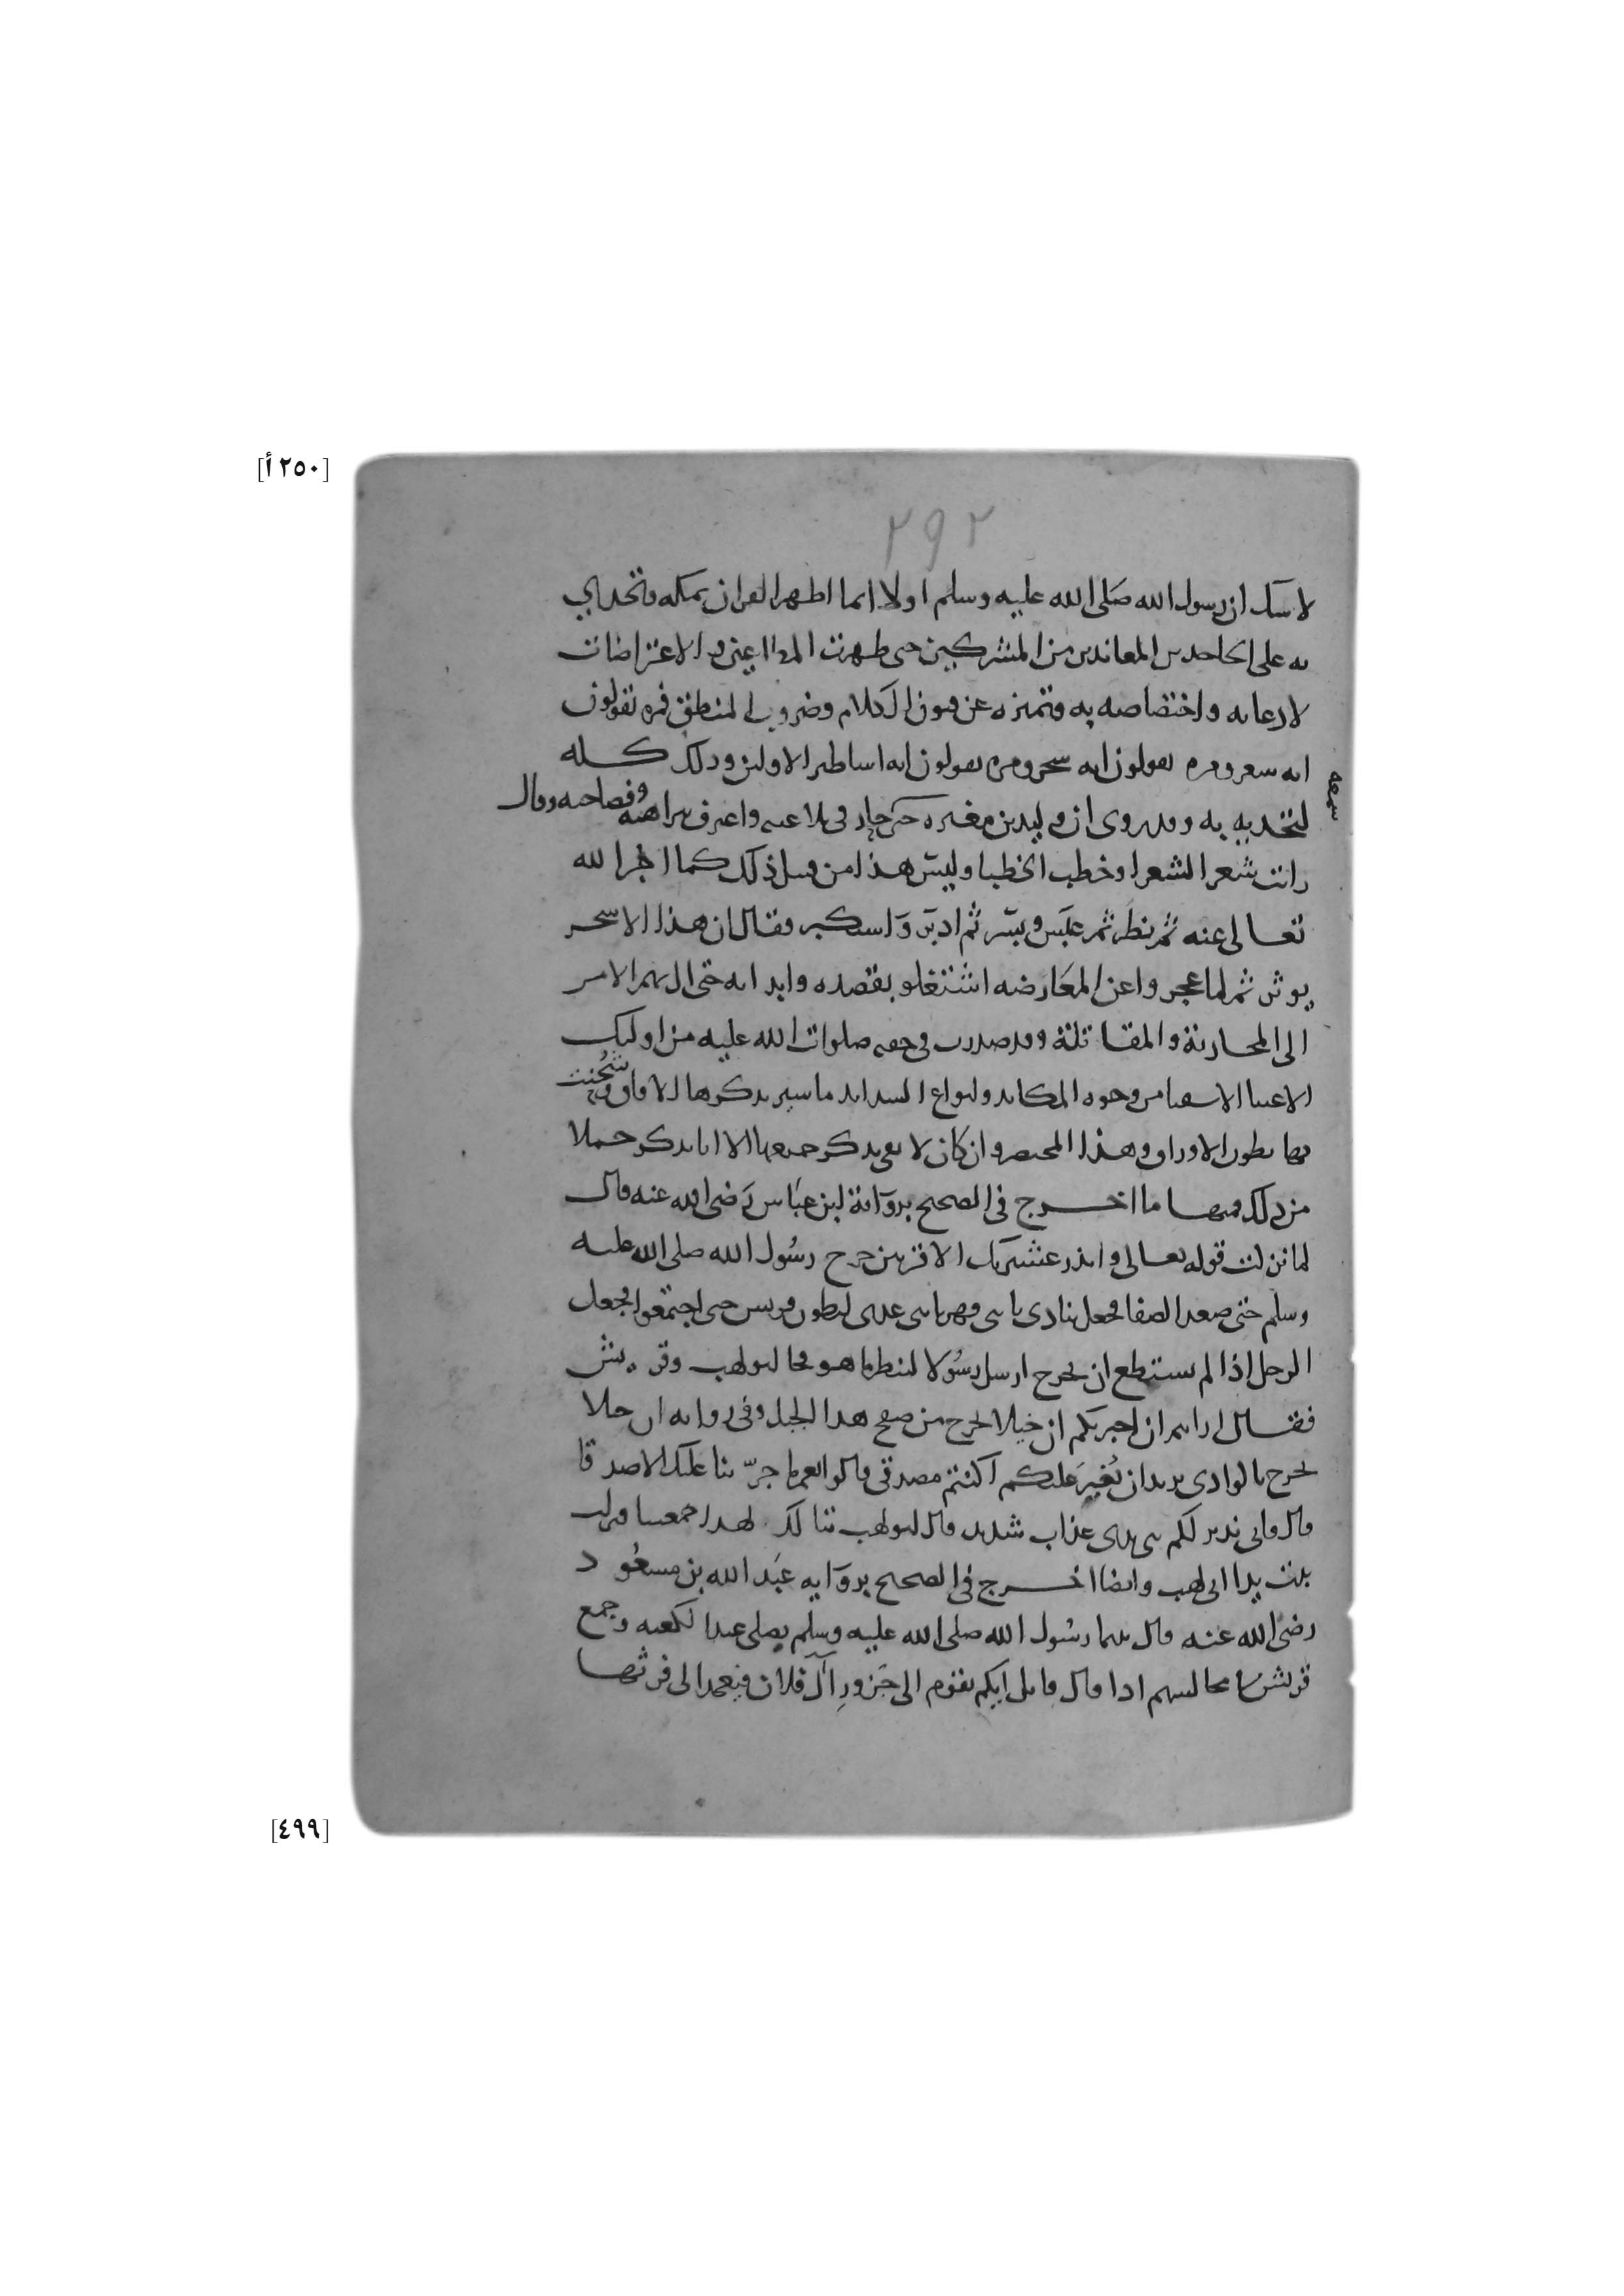 [٢٥٠ أ]
٢٩٢
لا شك ان رسول الله صَلى الله عليه وسلم اولا انما اظهر القران بمكه وتحدي
به على الجاحدين المعاندين من المشركين حتى ظهرت المطاعن والاعتراضات
لادعائه واختصاصه به وتميزه عن فنون الكلام وضروب المنطق فمره يقولون
انه شعر ومره يقولون انه سحر ومره يقولون انه اساطير الاولين وذلك كله
سمعه
لتحديه به وقد روى ان وليد بن مغيره حتى حار في بلاغته واعترف ببراهنه وفصاحته وقال
رائت شعر الشعرا وخطب الخطبا وليسَ هذا من قبيل ذلك كما اخبر الله
تعالى عنه ثم نظر ثم عبَس وبسَر ثم ادبَر وَاستكبر فقال ان هذا الا سحر
يوثر ثم لما عجزوا عن المعَارضه اشتغلو بقصده وايذائه حتى ال بهم الامر
الى المحاربة والمقاتلة وقد صدرت في حقه صلوات الله عليه من اوليك
الاغبيا الاشقيا من وجوه المكايد وانواع الشدايد ما سير بذكرها الافاق وشُحنت
بها بطون الاوراق وهذا المختصر وان كان لا يفي بذكر جميعها الا انا نذكر جملا
من ذلك فمنها ما اخرج في الصحيح بروَاية ابن عبَاس رَضى الله عنه قال
لما نزلت قوله تعالى وانذر عشيرتك الاقربين خرج رسُول الله صلى الله عليه
وسلم حتى صعد الصفا فجعل ينادى يا بنى فهر يا بنى عدى لبطون قريس حتى اجتمعوا فجعل
الرجل اذا لم يستطع ان يخرج ارسل رسُولا لينظر ما هو فجا ابو لهب وقريش
فقال ارايتم ان اخبرتكم ان خيلا تخرج من صفح هذا الجبل وفى روايه ان خيلا
تخرج بالوادى تريد ان تُغير عَليكم اكنتم مصدقى قالوا نعم ما جرّبنا عليك الا صدقا
قال فانى نذير لكم بين يدى عذاب شديد قال ابو لهب تبا لك الهذا جمعتنا فنزلت
تبت يدا ابى لهب وايضا اخرج في الصحيح بروَايه عبَد الله بن مسعُود
رضى الله عنه قال بينما رسُول الله صلى الله عليه وسلم يصلى عند الكعبه وجمع
قريش في مجالسهم اذا قال قايل ايكم يقوم الى جَزورِ آل فلان فيعمد الى فرثها
[٤٩٩]